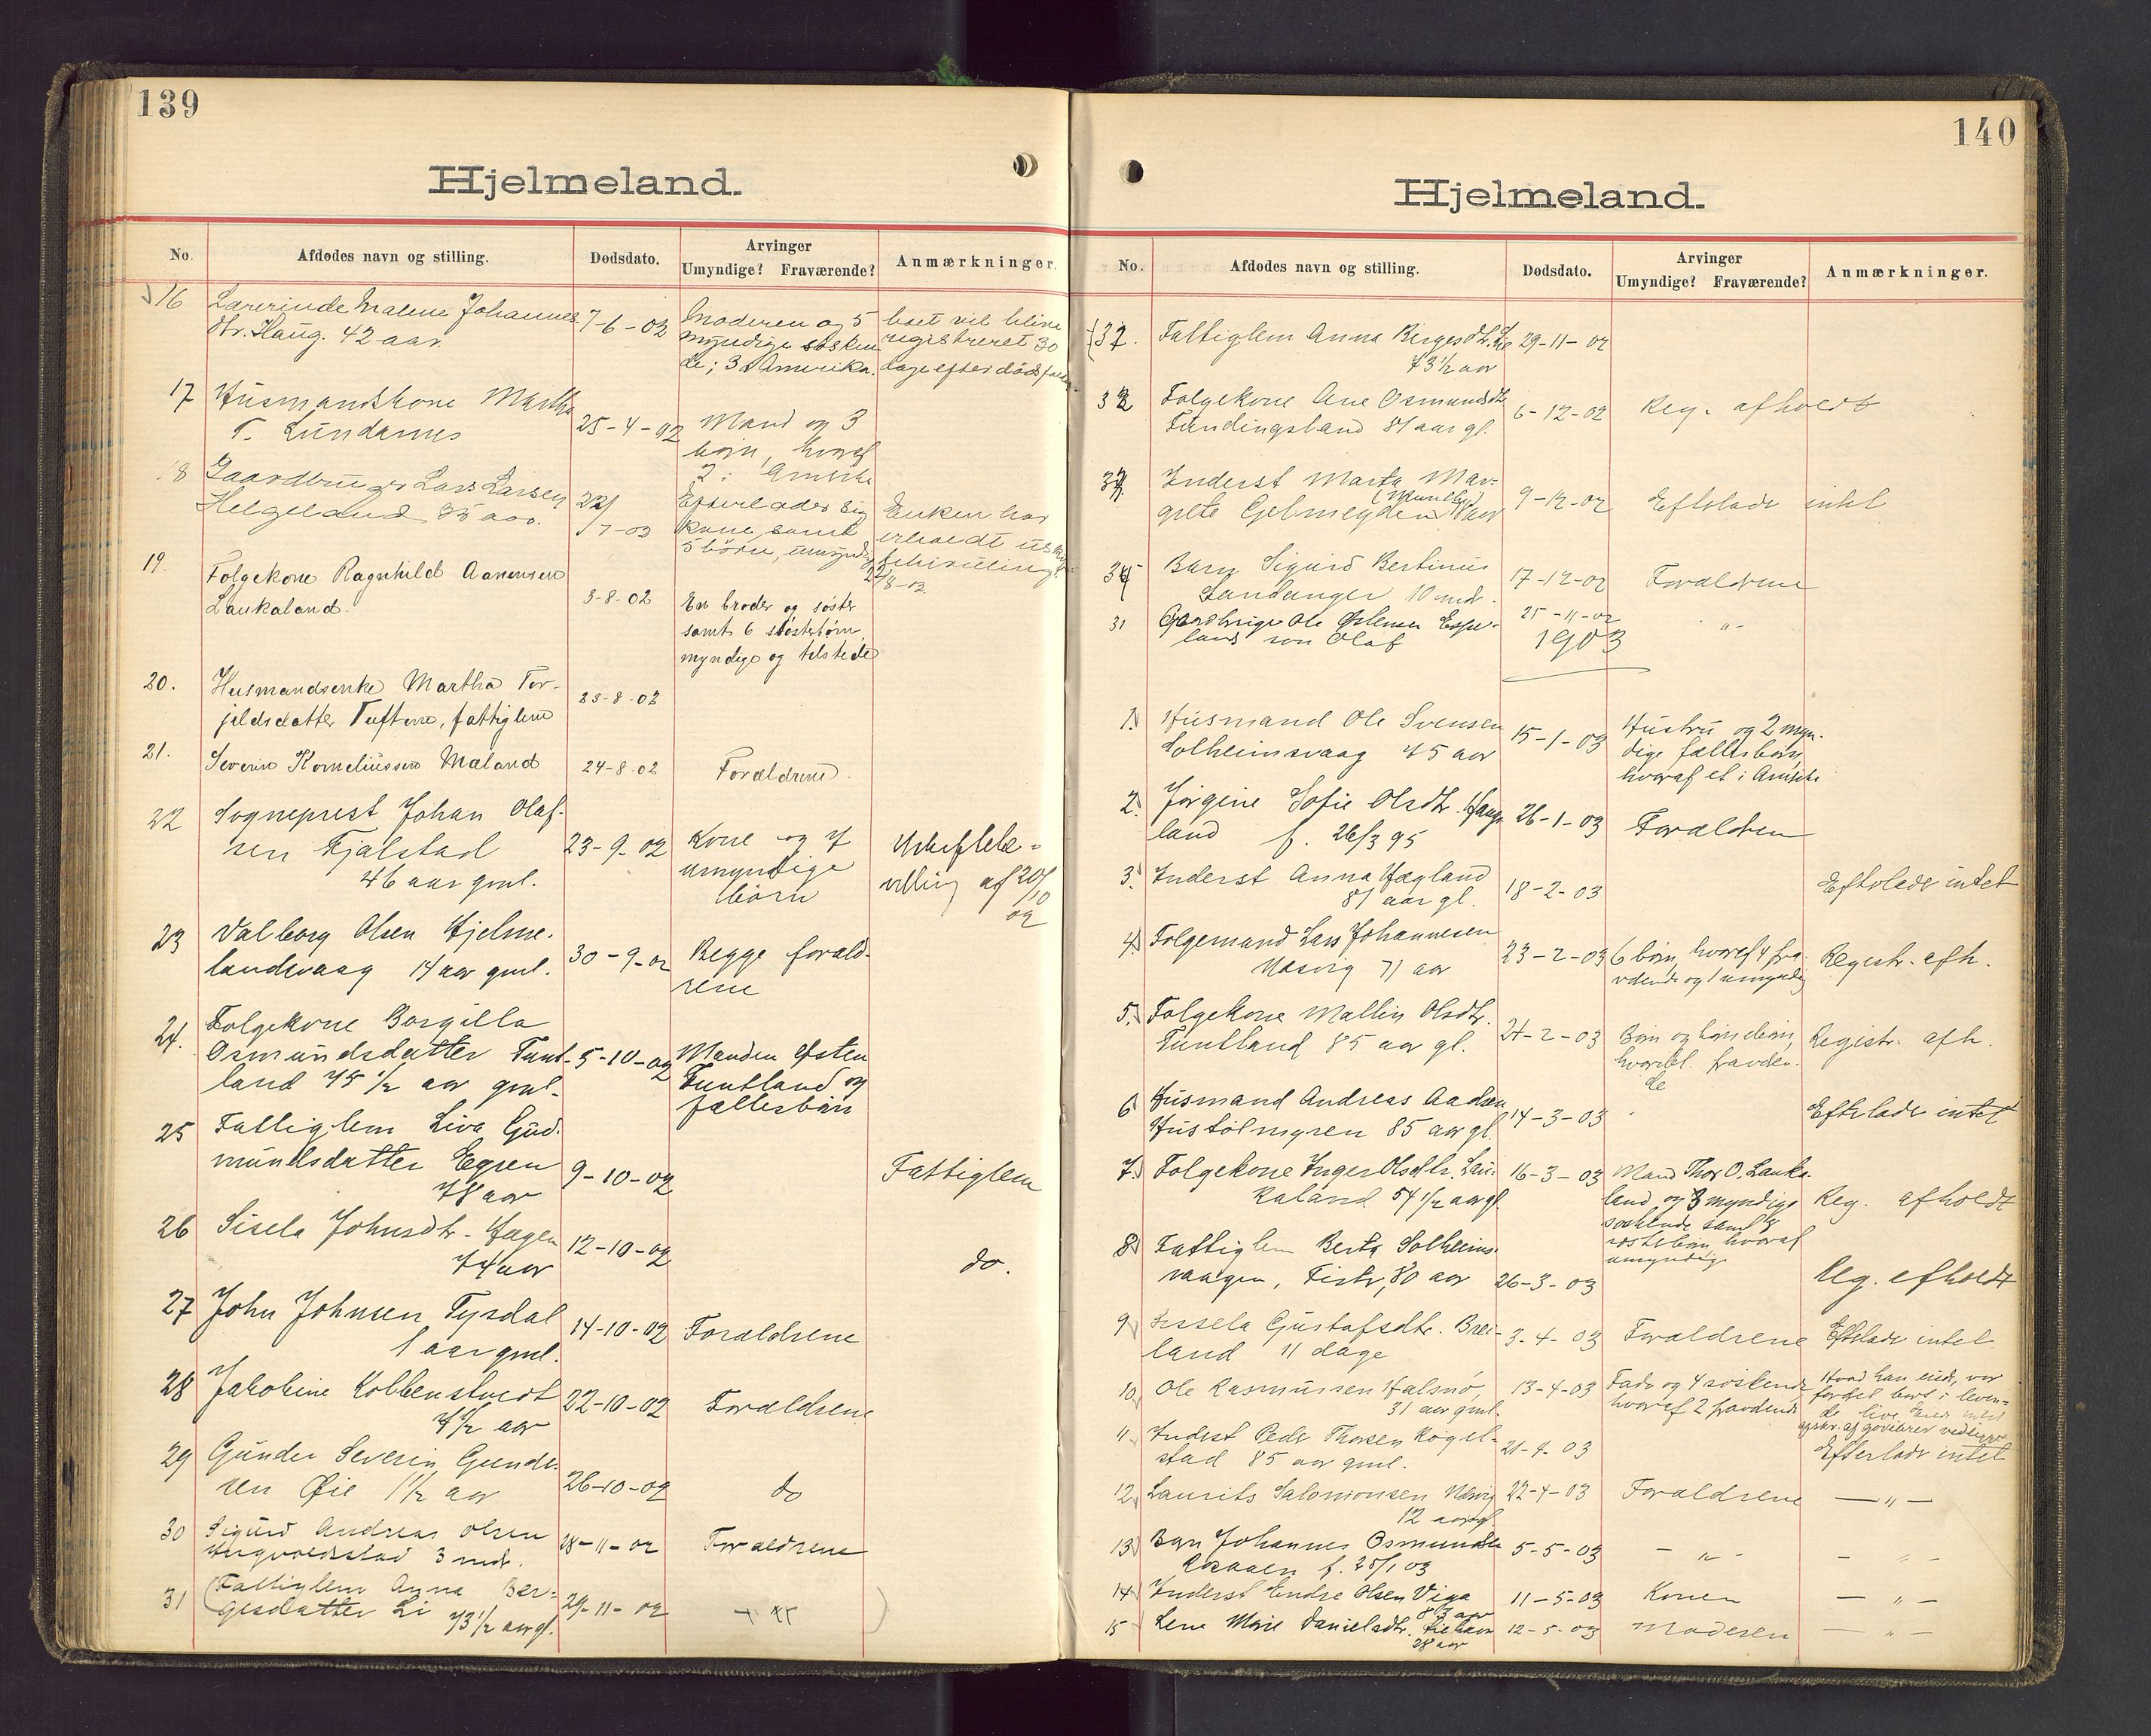 139
Hjelmeland.
No.
Afdødes navn og stilling.
Dødsdato.
Arvinger
Umyndige? Fraværende?
Anmærkninger.
16
Lærerinde Malene Johannes
dtr. Haug. 42 aar.
7-6-02
Moderen og 5
myndige søsken
de; 3 i Amerika.
boet vil blive
registreret 30
dage efter dødsfaldet
17
Husmandskone Martha
T. Lundarnes
25-4-02
Mand og 3
børn, hvoraf
2 i Amerika
18
Gaardbruger Lars Larsen
Helgeland 35 aar.
22/
7-03
Efterlader sig
kone samt
5 børn, umyndig
Enken har
erholdt uskifte
bevilling
22/8-03
19.
Folgekone Ragnhild Aanensen
Laukaland.
3-8-02
En broder og søster
samt 6 søsterbørn,
myndige og tilstede
20.
Husmandsenke Martha Tor-
jildsdatter Tuftene, fattiglem
23-8-02
21.
Severin Korneliussen Mæland
24-8-02
Forældrene.
22
Sogneprest Johan Olaf-
sen Fjalstad
46 aar gml.
23-9-02
Kone og 7
umyndige
børn
Uskiftebe-
villing af 20/
10
02
23
Valborg Olsen Hjelme-
landsvaag 14 aar gml.
30-9-02
Begge foræld-
rene
24.
Folgekone Borgilla
Osmundsdatter Tunt-
land 75 1/2 aar gml.
5-10-02
Manden Østen
Tuntland og
fællesbørn
25
Fattiglem Liva Gud-
mundsdatter Egren
78 aar
9-10-02
Fattiglem
26
Sisela Johnsdtr. Hagen
74 aar
12-10-02
do.
27
John Johnsen Tysdal
1 aar gml.
14-10-02
Forældrene
28
Jakobine Kolbenstvedt
4 1/2 aar
22-10-02
Forældrene
29
Gunder Severin Gunder-
sen Øie 1 1/2 aar
26-10-02
do
30
Sigurd Andreas Olsen
Yngvoldstad 3 mdr.
28-11-02
Forældrene
31
(Fattiglem Anna Bær-
gesdatter Li
73 1/2 aar gl.
29-11-02
)
140
Hjelmeland.
No.
Afdødes navn og stilling.
Dødsdato.
Arvinger
Umyndige? Fraværende?
Anmærkninger.
Fattiglem Anna Bergesdtr. Lie
73 1/2 aar
29-11-02
32
Folgekone Ane Osmundsdtr.
Fundingsland 81 aar gl.
6-12-02
Reg. afholdt
Inderst Marta Mar-
grete Gjelmeyden
9-12-02
Efterlade intet
34
Barn Sigurd Bertinius
Landanger 10 mdr.
17-12-02
Forældrene
31
Gardbruger Ole Østensen Espe-
land søn Olaf
25-11-02
- " -
1903
1.
Husmand Ole Svensen
Solheimsvaag 45 aar
15-1-03
Hustru og 2 myn-
dige fællesbørn,
hvoraf et i Amerika
2.
Jørgine Sofie Olsdtr. Hauge
land f. 26/3 95
26-1-03
Forældren
3.
Inderst Anna Hægland
81 aar gl.
18-2-03
Efterlade intet
4.
Folgemand Lars Johannesen
Nesvig 71 aar
23-2-03
6 børn, hvoraf 4 fra-
værende og 1 umyndig
Registr. afh.
5.
Folgekone Mallin Olsdtr.
Tuntland 85 aar gl.
24-2-03
Børn og børnebørn,
hvoribl. fraværen-
de
Registr. afh.
6
Husmand Andreas Aadsen
Hustølmyren 85 aar gl.
14-3-03
Efterlade intet
7.
Folgekone Inger Olsdtr. Lau-
kaland 54 1/2 aar gl.
16-3-03
Mand Thor O. Lauka-
land og 3 myndige
søskende samt
søsterbørn hvoraf
umyndig
Reg. afholdt
8
Fattiglem Berta Solheims-
vaagen, Fister, 80 aar
26-3-03
Reg. afholdt
9
Sissela Gustafsdtr. Brei-
land 11 dage
3-4-03
Forældrene
Efterlade intet
10
Ole Rasmussen Halsnø,
31 aar gml.
13-4-03
Fader og 4 søskende
hvoraf 2 fraværende
Hvad han eied, var
fordelt bort i leven-
de live
11
Inderst Peder Thorsen Køgel-
stad 85 aar gml.
21-4-03
Efterlade intet
12
Laurits Salomonsen Nesvig
12 aar gl.
22-4-03
Forældrene
— " —
13
Barn Johannes Osmundsen
f. 25/1 03
5-5-03
- " -
- " -
14
Inderst Endre Olsen Viga
83 aar
11-5-03
Konen
— " —
15
Lene Marie Danielsdtr.
28 aar
12-5-03
Moderen
— " —